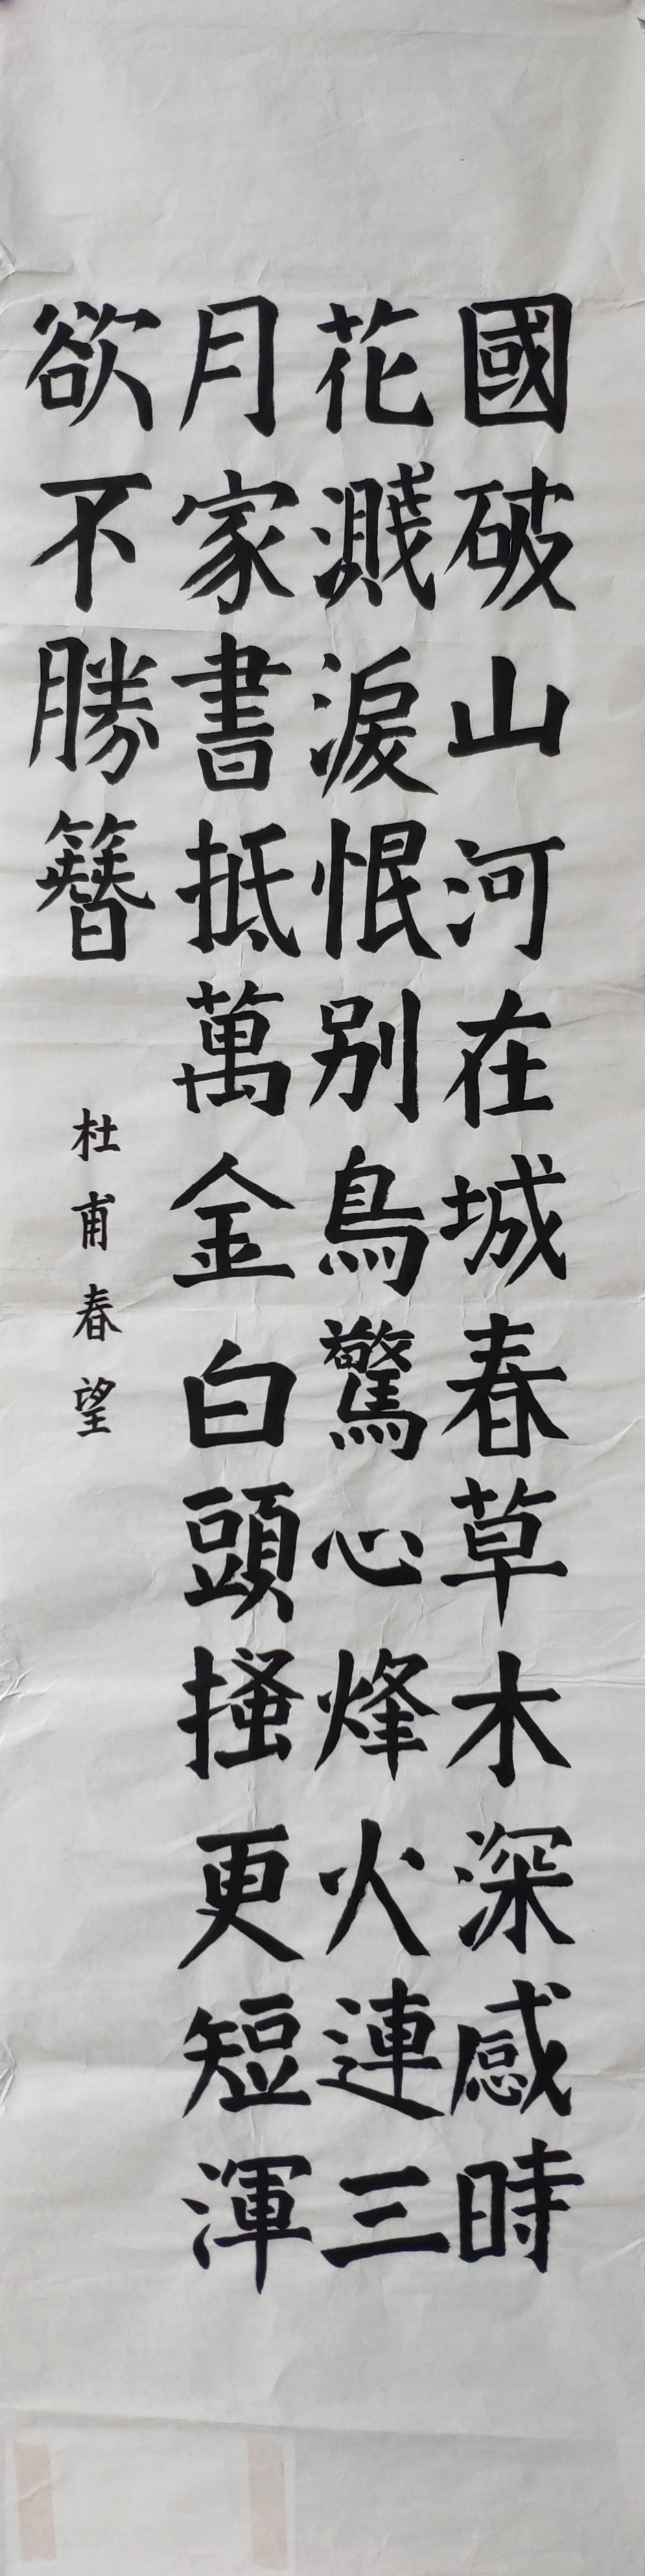 國破山河在城春草木深感時
花濺淚恨别鳥驚心烽火連三
月家書抵萬金白頭搔更短渾
欲不勝簪
杜甫春望